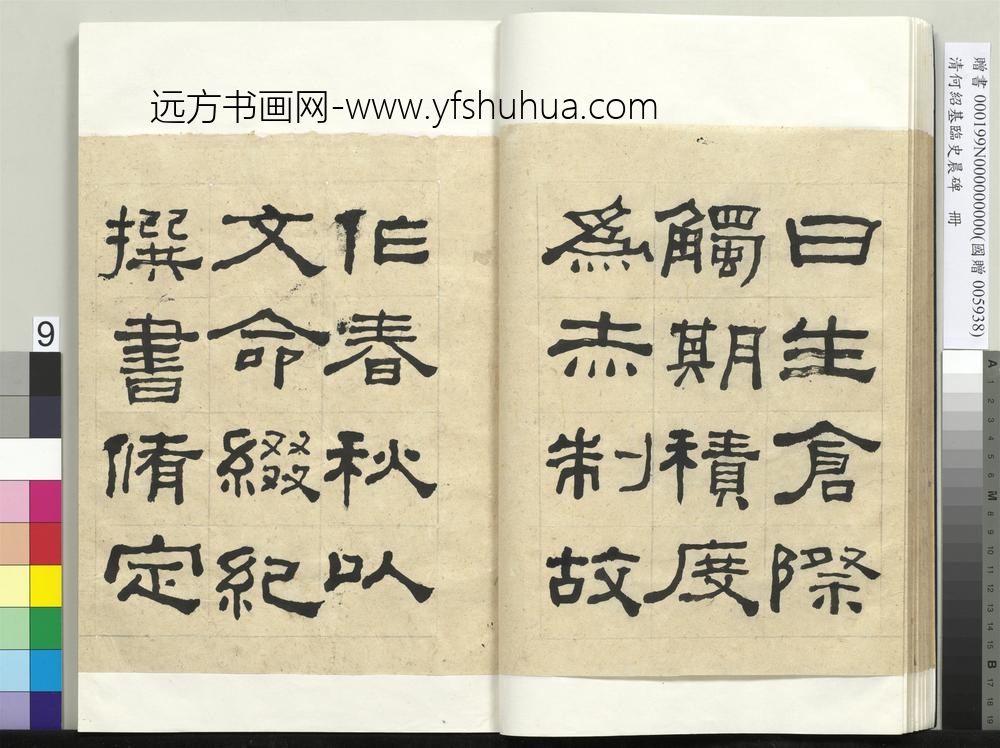 远方书画网-www.yfshuhua.com
曰生倉際
觸期積度
爲赤制故
作春秋以
文命綴紀
撰書脩定
贈書 000199N000000000(國贈 005938)
清何紹基臨史晨碑 冊
9
A 1 2 3 4 5 6 M 8 9 10 11 12 13 14 15 B 17 18 19